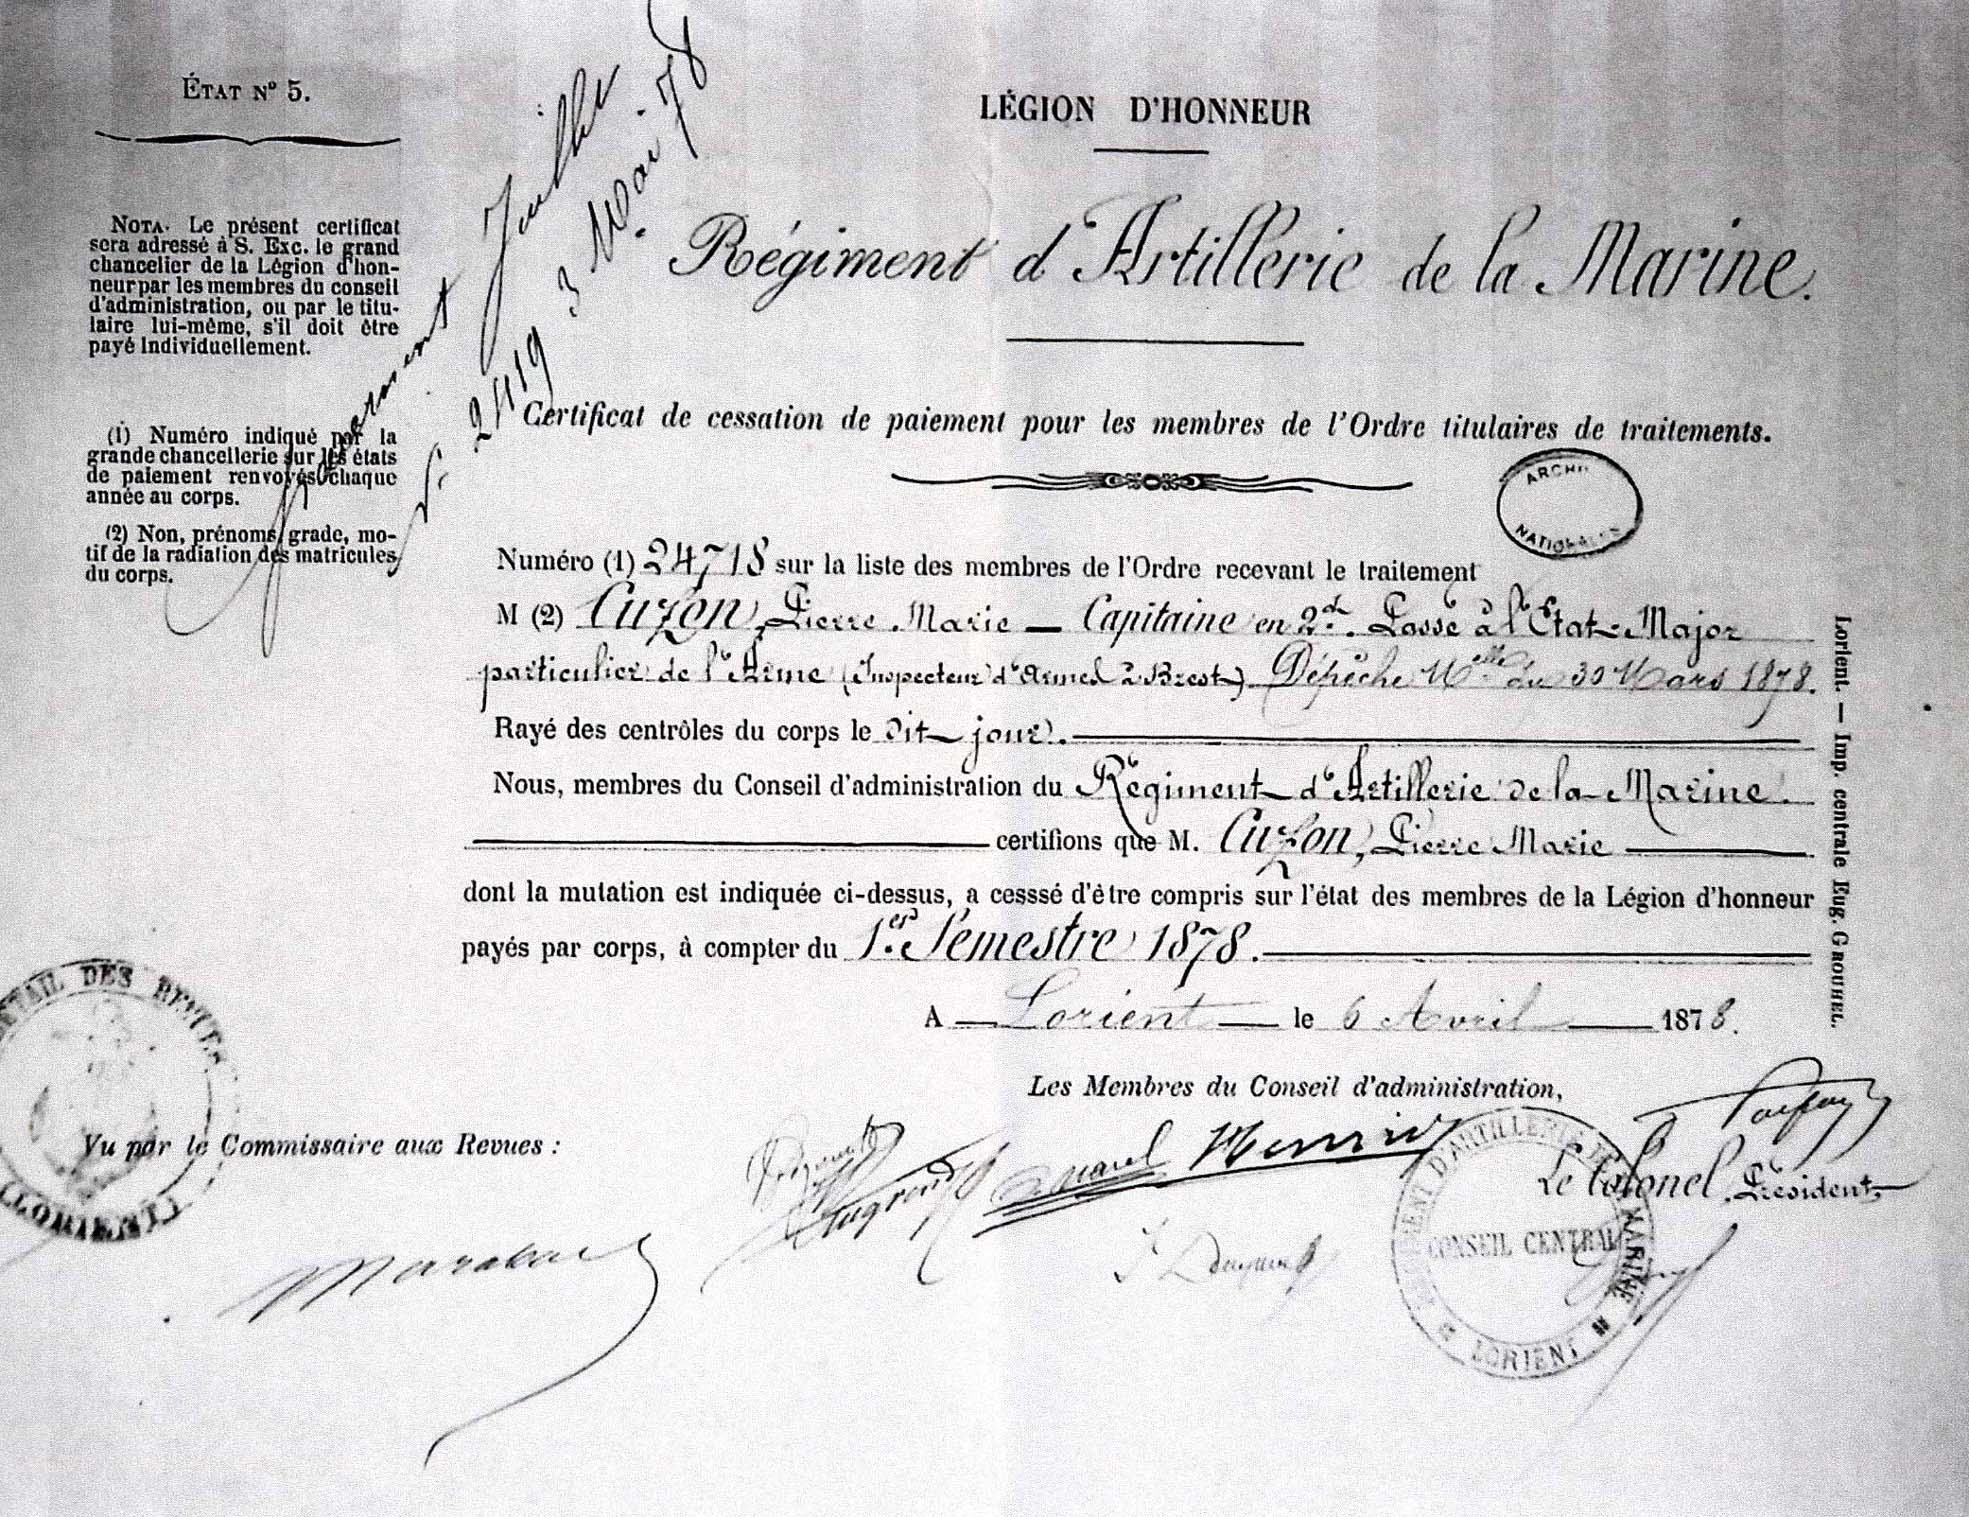 ÉTAT N° 5.
NOTA. Le présent certificat
sera adressé à S. Exc. le grand
chancelier de la Légion d'hon-
neur par les membres du conseil
d'administration, ou par le titu-
laire lui-même, s'il doit être
payé individuellement.
(1) Numéro indiqué par la
grande chancellerie sur les états
de paiement renvoyés chaque
année au corps.
(2) Non, prénoms, grade, mo-
tif de la radiation des matricules
du corps.
Juillet
N° 2419 3 Mai 78
LÉGION D'HONNEUR
Régiment d'Artillerie de la Marine.
Certificat de cessation de paiement pour les membres de l'Ordre titulaires de traitements.
ARCHI
NATIONALES
Numéro (1) 24718 sur la liste des membres de l'Ordre recevant le traitement
M (2) Cuzon, Pierre Marie — Capitaine en 2d. Passé à l'Etat-Major
particulier de l'Arme (Inspecteur d'Armes à Brest) Dépêche Melle du 30 Mars 1878.
Rayé des contrôles du corps le dit jour.
Nous, membres du Conseil d'administration du Régiment d'Artillerie de la Marine.
certifions que M. Cuzon, Pierre Marie
dont la mutation est indiquée ci-dessus, a cesssé d'être compris sur l'état des membres de la Légion d'honneur
payés par corps, à compter du 1er Semestre 1878.
A Lorient le 6 Avril 1878.
Les Membres du Conseil d'administration,
Le Colonel Président,
Vu par le Commissaire aux Revues :
DÉTAIL DES REVUES
(LORIENT)
RÉGIMENT D'ARTILLERIE DE MARINE
CONSEIL CENTRAL
LORIENT
Lorient. — Imp. centrale Eug. GROUHEL.